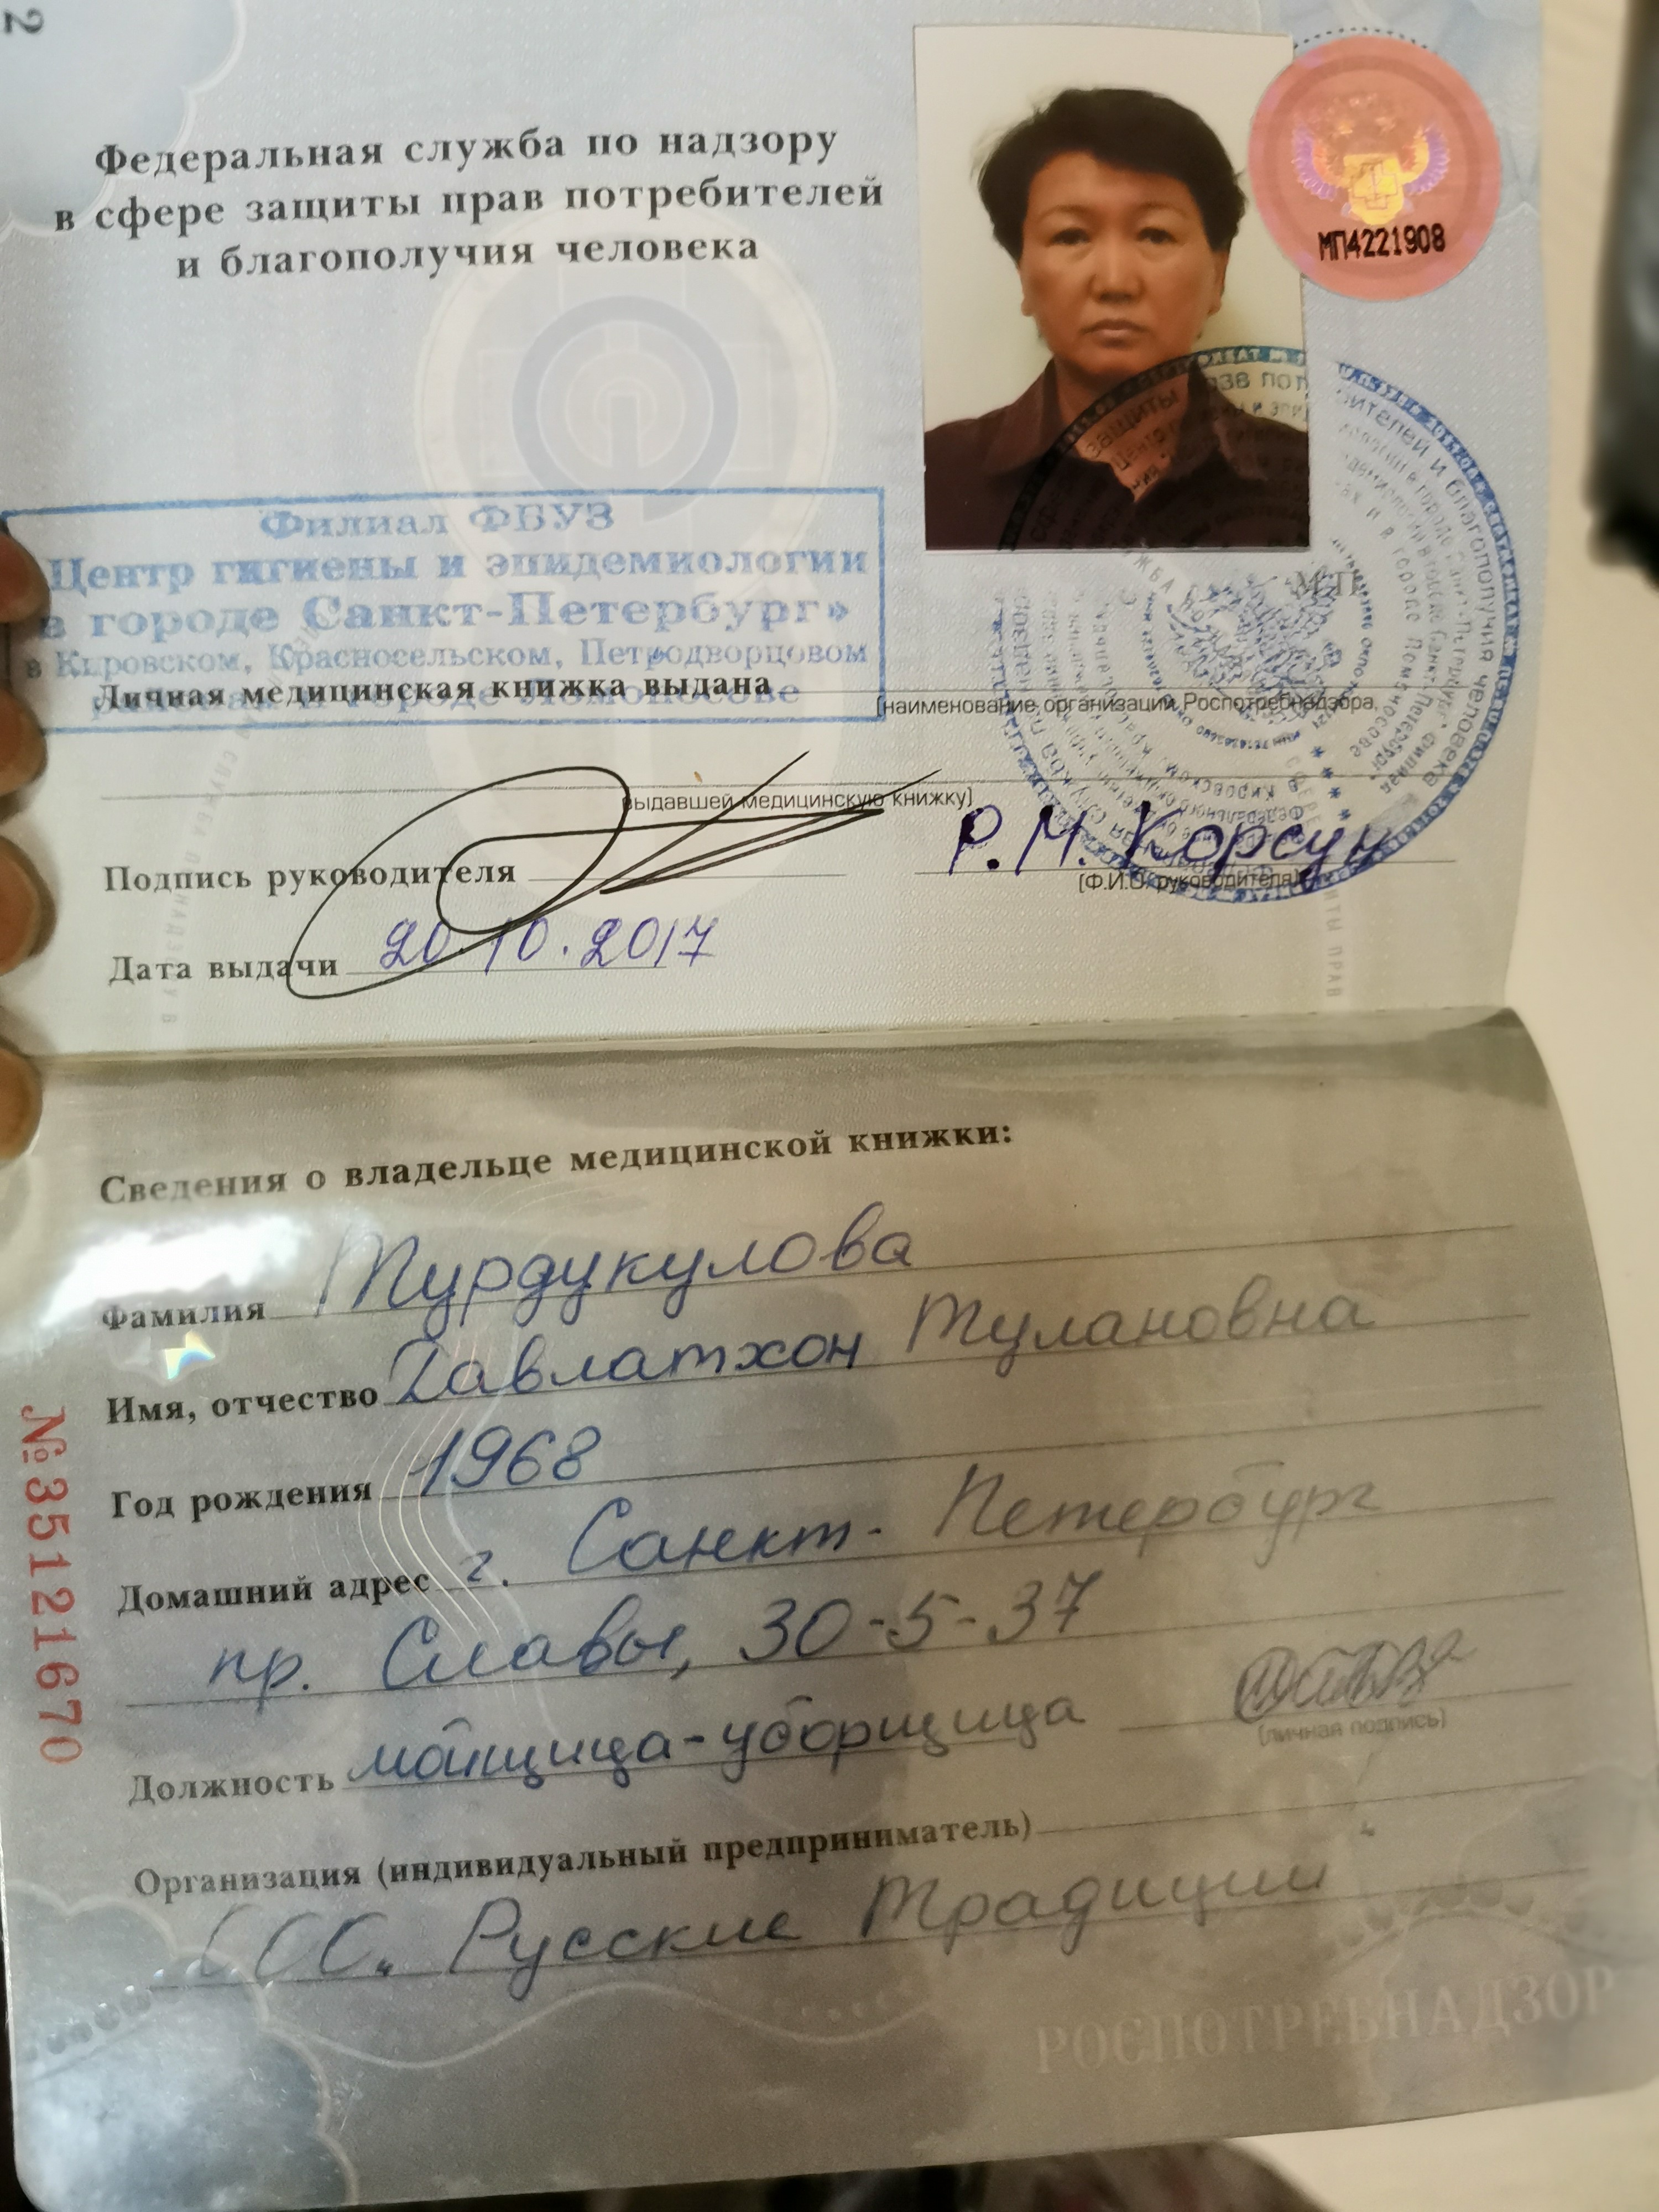 2
Федеральная служба по надзору
в сфере защиты прав потребителей
и благополучия человека
МП4221908
Филиал ФБУЗ
Центр гигиены и эпидемиологии
в городе Санкт-Петербург»
в Кировском, Красносельском, Петродворцовом
городе Ломоносове
Личная медицинская книжка выдана
(наименование организации Роспотребнадзора,
М.П.
выдавшей медицинскую книжку)
Подпись руководителя Р.М. Корсун
(Ф.И.О. руководителя)
Дата выдачи 20.10.2017
Сведения о владельце медицинской книжки:
Фамилия Турдукулова
Имя, отчество Давлатхон Тулановна
Год рождения 1968
Домашний адрес г. Санкт-Петербург
пр. Славы, 30-5-37
Должность мойщица-уборщица
(личная подпись)
Организация (индивидуальный предприниматель)
ООО "Русские Традиции
№35121670
РОСПОТРЕБНАДЗОР